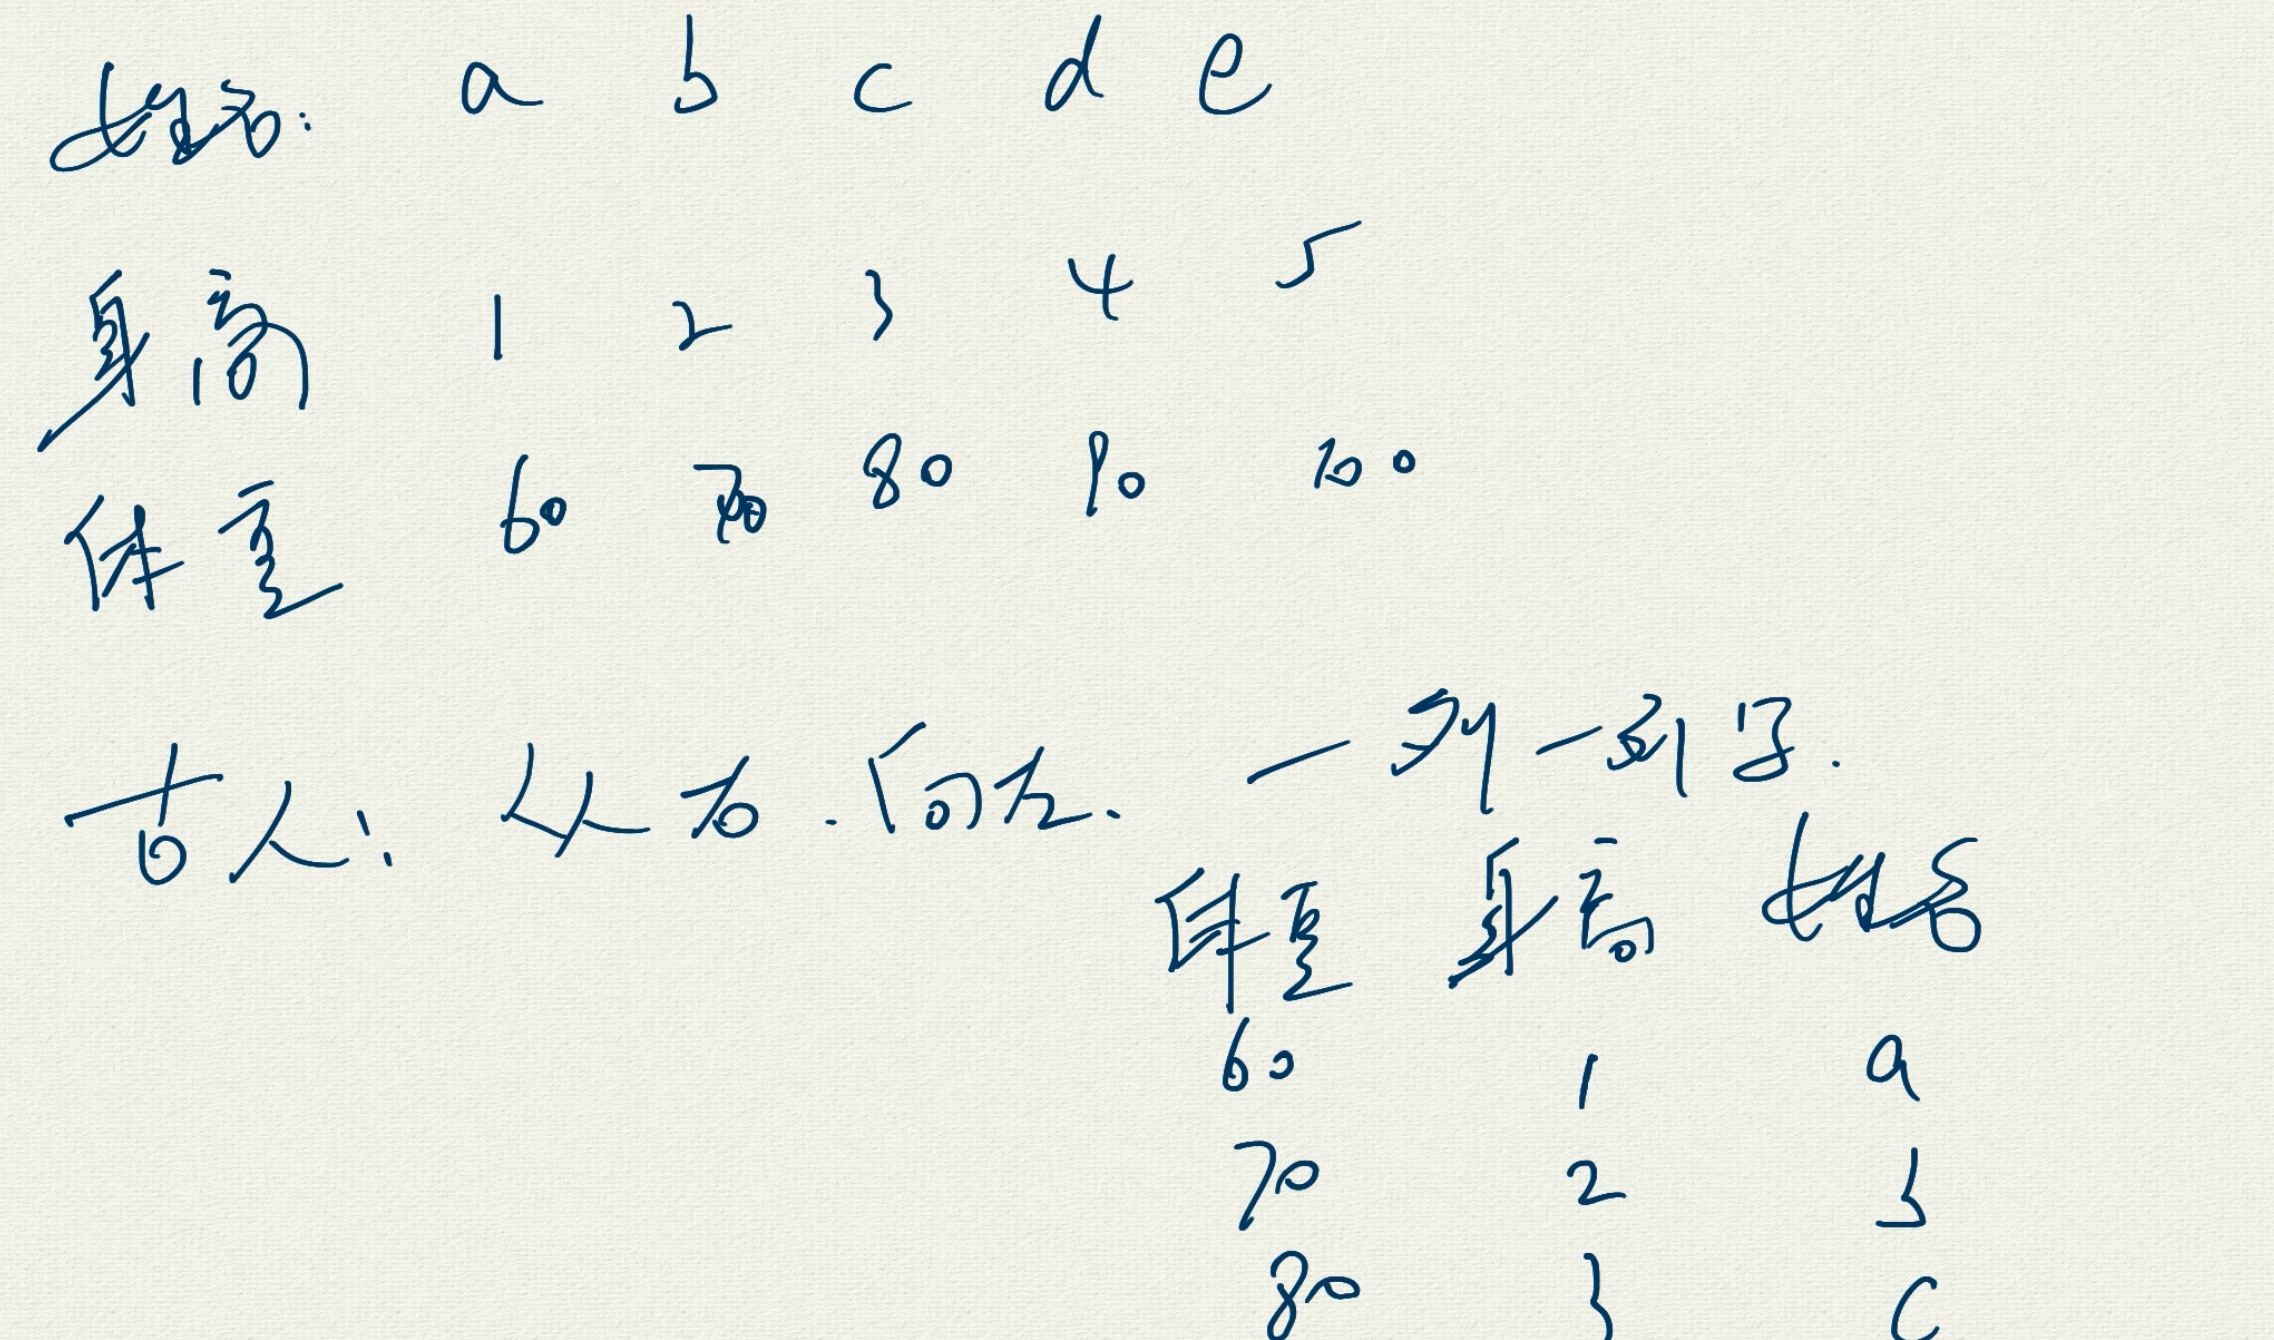 姓名: a b c d e
身高 1 2 3 4 5
体重 60 70 80 90 100
古人: 从右.向左. 一列一列写.
体重 身高 姓名
60 1 a
70 2 b
80 3 c